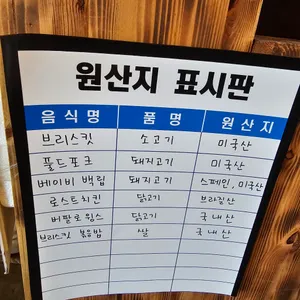 원산지 표시판
음식명 품명 원산지
브리스킷 소고기 미국산
풀드포크 돼지고기 미국산
베이비 백립 돼지고기 스페인, 미국산
로스트치킨 닭고기 브라질산
버팔로윙스 닭고기 국내산
브리스킷 볶음밥 쌀 국내산